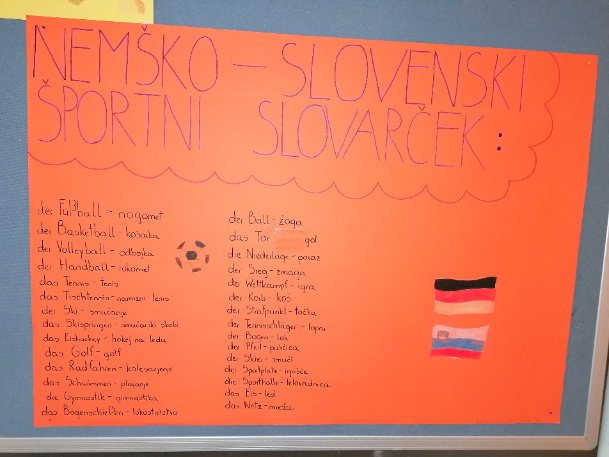 NEMŠKO - SLOVENSKI
ŠPORTNI SLOVARČEK:
der Fußball - nogomet
der Basketball - košarka
der Volleyball - odbojka
der Handball - rokomet
das Tennis - tenis
das Tischtennis - namizni tenis
der Ski - smučanje
das Skispringen - smučarski skoki
das Eishockey - hokej na ledu
das Golf - golf
das Radfahren - kolesarjenje
das Schwimmen - plavanje
die Gymnastik - gimnastika
das Bogenschießen - lokostrelstvo
der Ball - žoga
das Tor gol
die Niederlage - poraz
der Sieg - zmaga
der Wettkampf - igra
der Korb - koš
der Strafpunkt - točka
der Tennisschläger - lopar
der Bogen - lok
der Pfeil - puščica
der Skier - smuči
der Sportplatz - igrišče
die Sporthalle - telovadnica
das Eis - led
das Netz - mreža